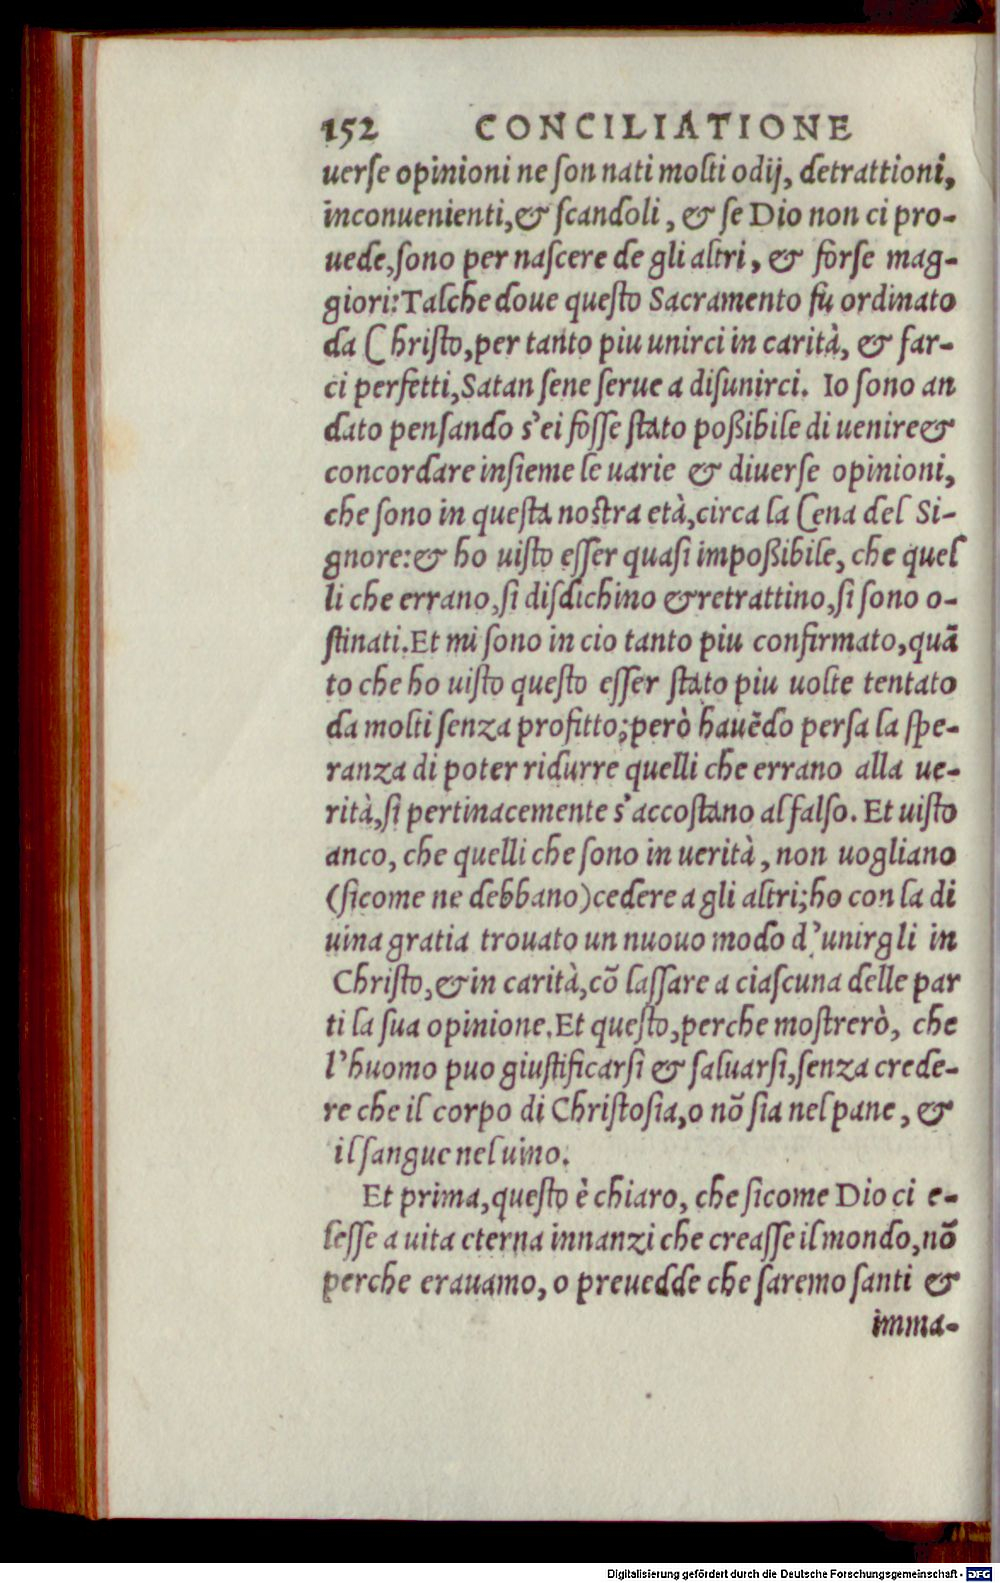 152 CONCILIATIONE
uerſe opinioni ne ſon nati molti odij, detrattioni,
inconuenienti, & ſcandoli, & ſe Dio non ci pro-
uede, ſono per naſcere de gli altri, & forſe mag-
giori: Talche doue queſto Sacramento fu ordinato
da Chriſto, per tanto piu unirci in carità, & far-
ci perfetti, Satan ſene ſerue a diſunirci. Io ſono an
dato penſando s'ei foſſe ſtato poßibile di uenire &
concordare inſieme le uarie & diuerſe opinioni,
che ſono in queſta noſtra età, circa la Cena del Si-
gnore: & ho uiſto eſſer quaſi impoßibile, che quel
li che errano, ſi diſdichino & retrattino, ſi ſono o-
ſtinati. Et mi ſono in cio tanto piu confirmato, quã
to che ho uiſto queſto eſſer ſtato piu uolte tentato
da molti ſenza profitto; però hauẽdo perſa la ſpe-
ranza di poter ridurre quelli che errano alla ue-
rità, ſi pertinacemente s'accoſtano al falſo. Et uiſto
anco, che quelli che ſono in uerità, non uogliano
(ſicome ne debbano) cedere a gli altri; ho con la di
uina gratia trouato un nuouo modo d'unirgli in
Chriſto, & in carità, cõ laſſare a ciaſcuna delle par
ti la ſua opinione. Et queſto, perche moſtrerò, che
l'huomo puo giuſtificarſi & ſaluarſi, ſenza crede-
re che il corpo di Chriſto ſia, o nõ ſia nel pane, &
il ſangue nel uino.
Et prima, queſto è chiaro, che ſicome Dio ci e-
leſſe a uita eterna innanzi che creaſſe il mondo, nõ
perche erauamo, o preuedde che ſaremo ſanti &
imma-
Digitalisierung gefördert durch die Deutsche Forschungsgemeinschaft - DFG